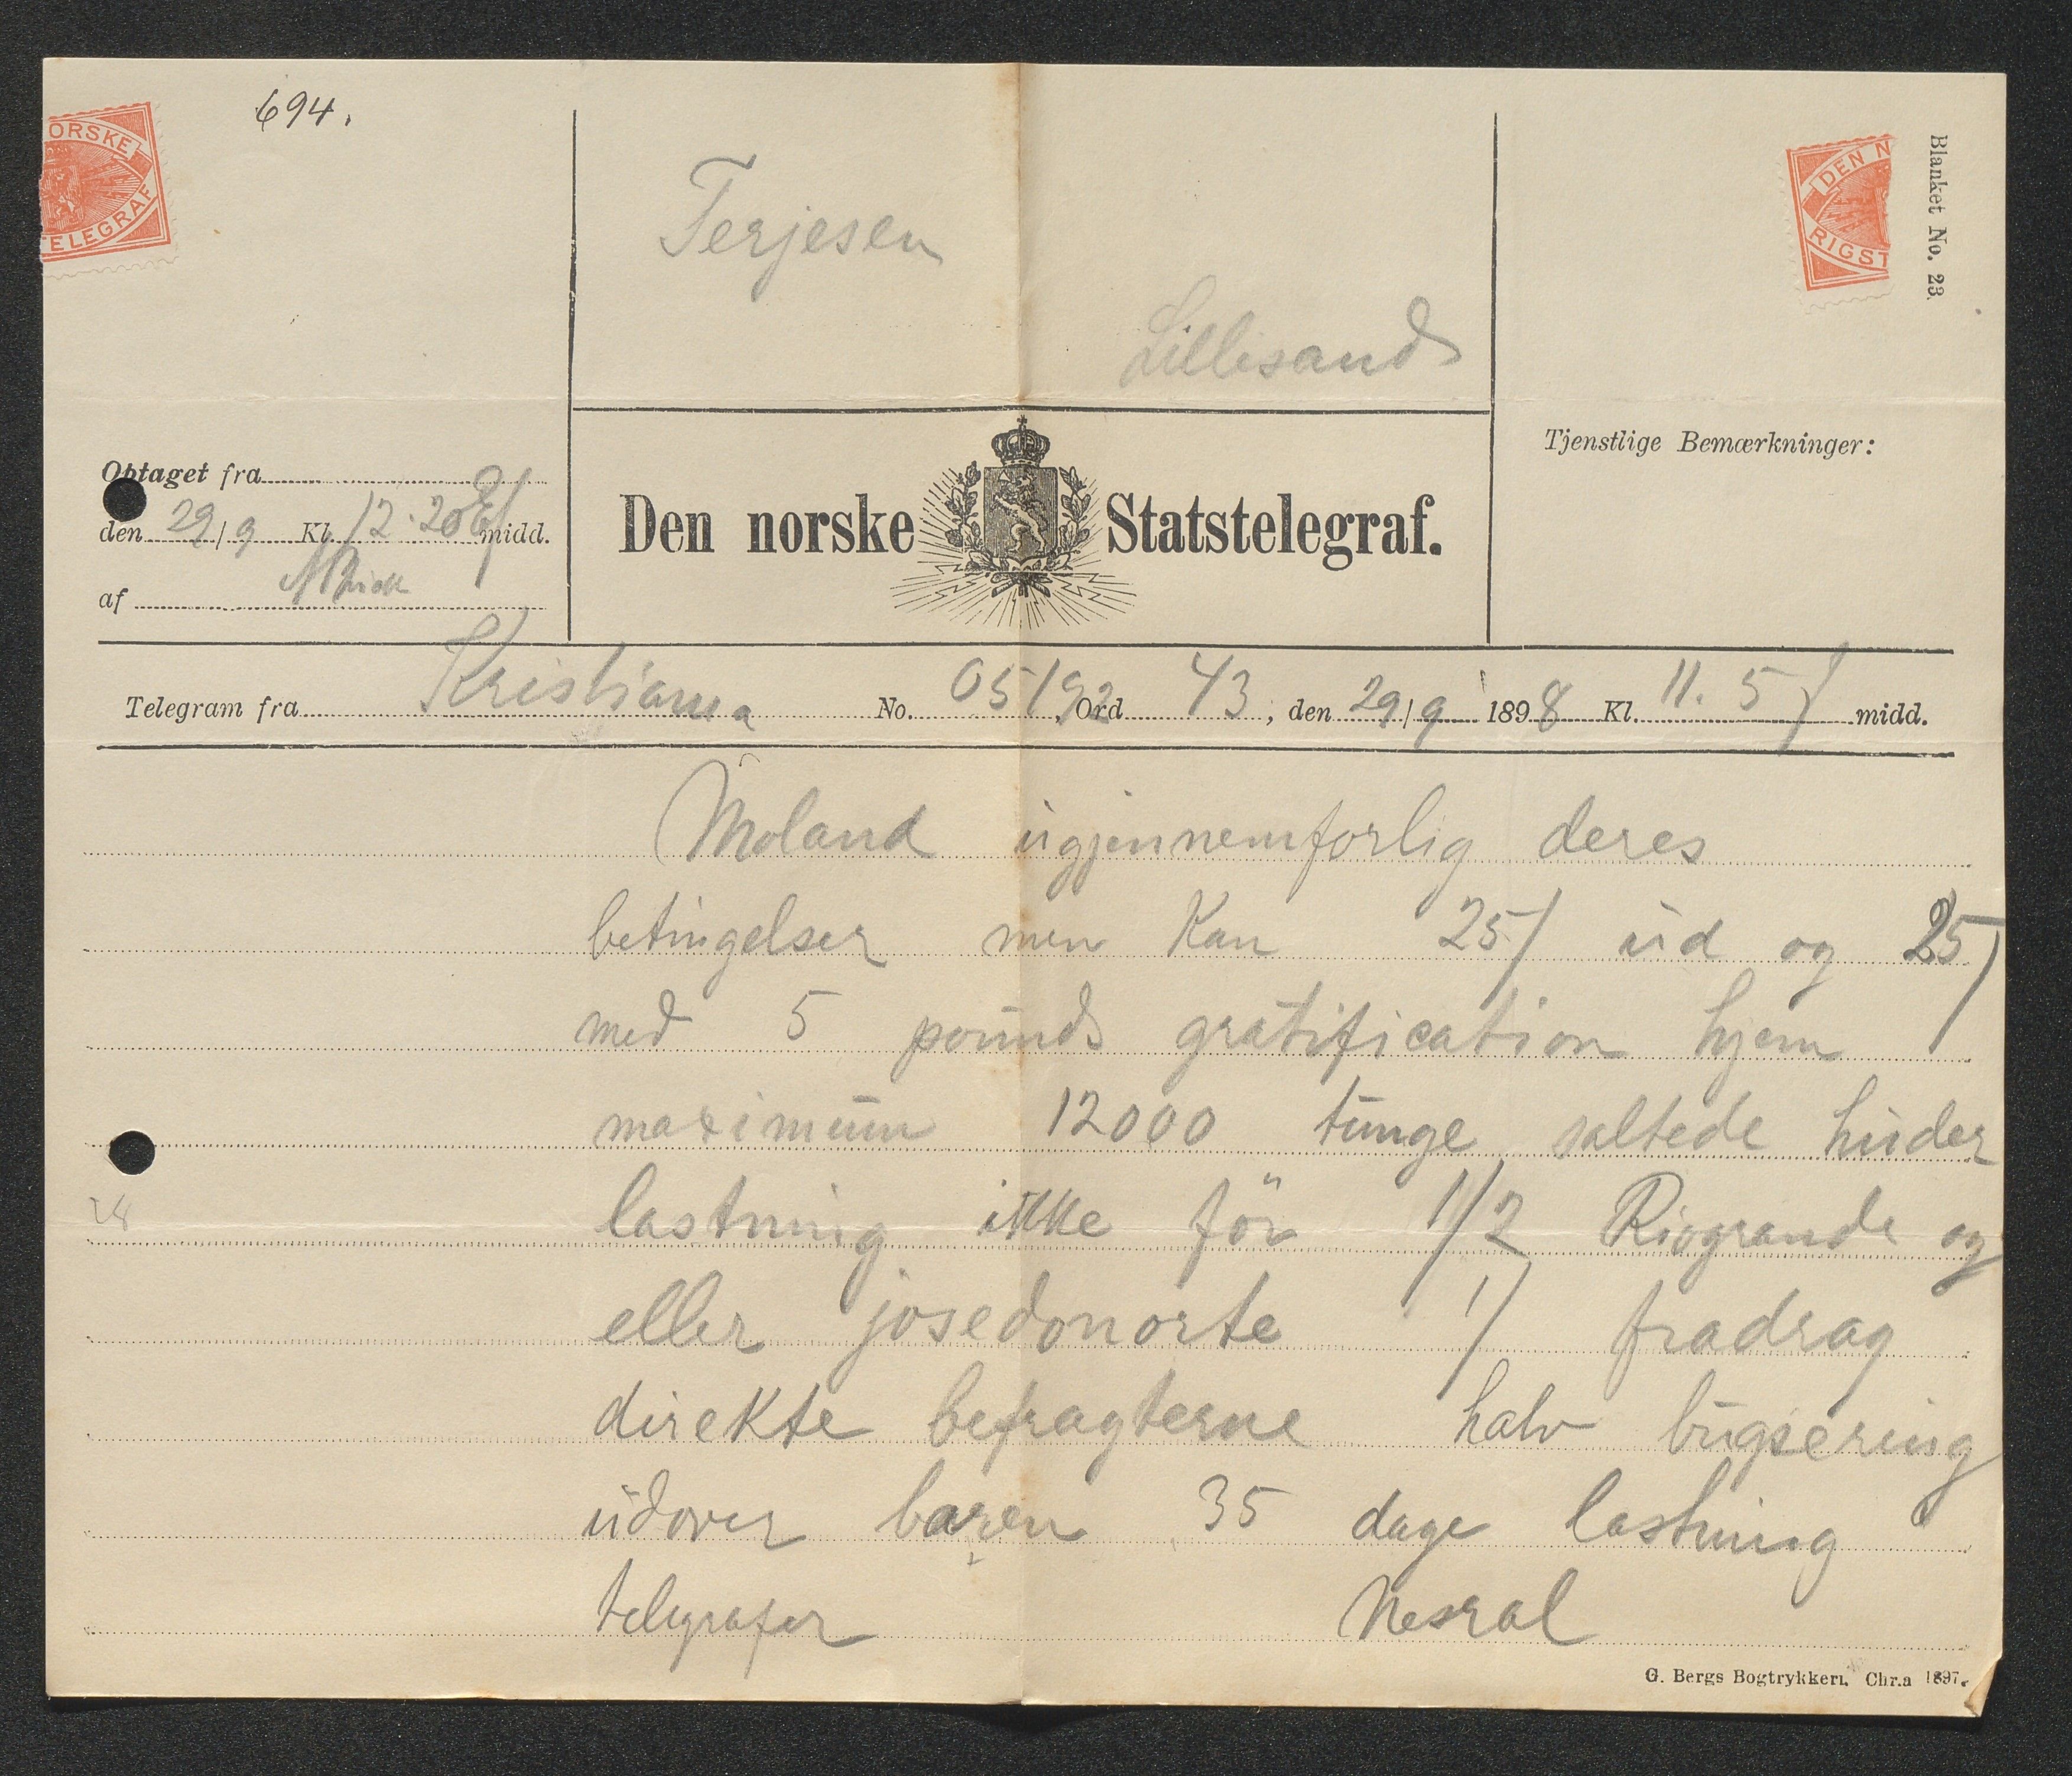 694.
ORSKE
ELEGRAF
DEN N
RIGST
Blanket No. 23.
Terjesen
Lillesand
Optaget fra
den 29/9 Kl. 12.20 Ef midd.
af
Den norske Statstelegraf.
Tjenstlige Bemærkninger:
Telegram fra Kristiania No. 05192 Ord 43, den 29/9 1898 Kl. 11.5 f midd.
Moland ugjennemforlig deres
betingelser men kan 25/ ud og 25/
med 5 pounds gratification hjem
maximum 12000 tunge saltede huder
lastning ikke för 1/2 Riogrande og
eller josedonorte 1/ fradrag
direkte befragterne halv bugsering
udover baren 35 dage lastning
telegrafer Nesral
G. Bergs Bogtrykkeri, Chr.a 1897.